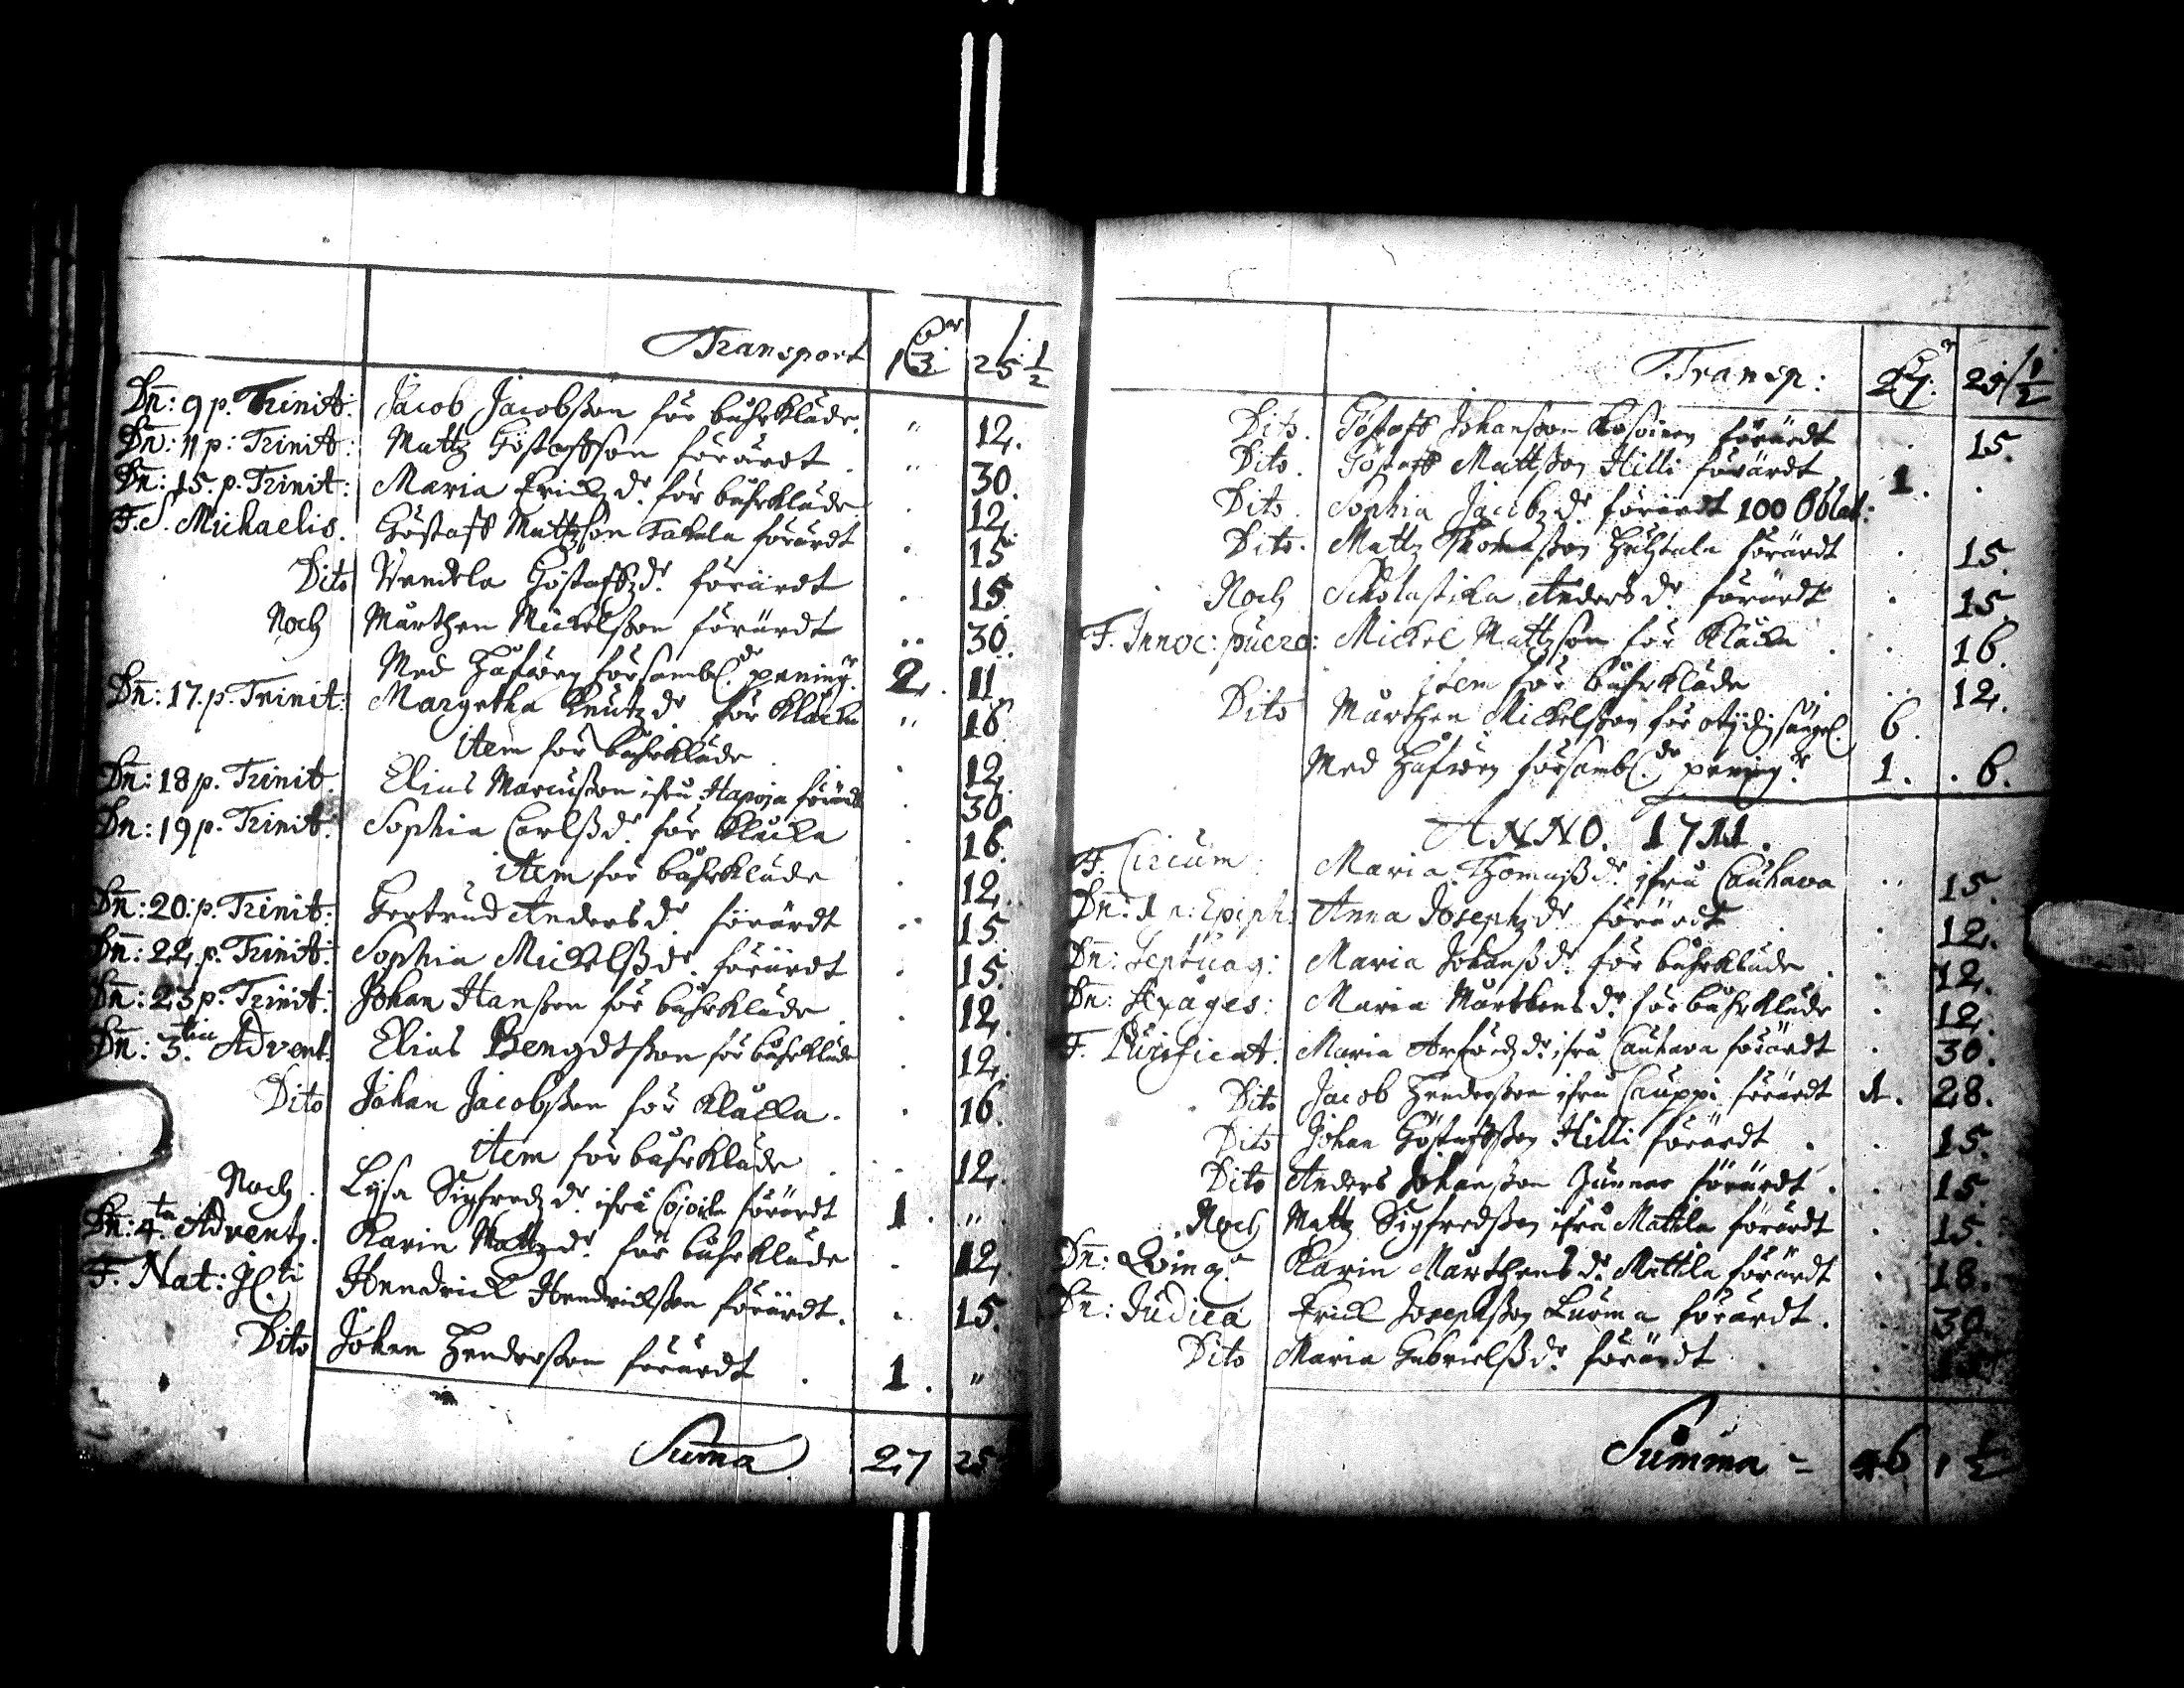 Transport 13 25 1/2
Dn: 9 p. Trinit: Jacob Jacobsson för båhrkläde. " 12.
Dn: 11 p: Trinit: Mattz Göstaffson förärdt . " 30.
Dn: 15. p. Trinit: Maria Erickz dr. för båhrkläde . 12.
F. S. Michaelis. Göstaff Mattzson Takala förärdt . 15
Dito Vendela Göstaffz dr. förärdt . 15
Noch Mårthen Mickelsson förärdt .. 30.
Med Håfwen försambl. de penning.r 2. 11
Dn: 17. p. Trinit: Margetha Knutz dr. för Klåcka " 16
item för båhrkläde . 12
Dn: 18 p. Trinit. Elias Marcusson ifrå Hapoja förärdt . 30
Dn: 19 p. Trinit. Sophia Carlß dr. för Klåcka . 16.
item för båhrkläde . 12.
Dn: 20. p. Trinit: Gertrud Anders dr. förärdt . 15.
Dn: 22. p. Trinit: Sophia Mickelß dr. förärdt . 15.
Dn: 23 p. Trinit: Johan Hansson för båhrkläde . 12.
Dn: 3.tia Advent. Elias Bengdtsson för båhrkläde . 12.
Dito Johan Jacobsson för Klåcka . . 16.
item för båhrkläde . 12.
Noch . Lysa Sigfredz dr. ifrå förärdt 1. "
Dn: 4.ta Advent. Karin Mattz dr. för båhrkläde . 12.
F. Nat: Xti Hendrick Hendricksson förärdt. . 15.
Dito Johan Hendersson förärdt . 1. "
Summa 27 25
Transp: 27. 25 1/2
Dito. Göstaff Johansson förärdt . 15.
Dito. Göstaff Mattsson Hilli förärdt 1. .
Dito. Sophia Jacobz dr. förärdt 100 Oblat:
Dito. Mattz Thomasson förärdt . 15.
Noch Scholastika Anders dr. förärdt . 15.
F. Innoc: puero: Mickel Mattzson för Klåcka . . 16.
item för båhrkläde . .. 12.
Dito Mårthen Mickelsson för 6.
Med Håfwen försambl. de penning.r 1. . 6.
ANNO. 1711.
F. Circum Maria Thomaß dr. ifrå Cauhava .. 15.
Dn: 1 p: Epiph: Anna Josephz dr. förärdt . . 12.
Dn: Septuag: Maria Johanß dr. för båhrkläde . . 12.
Dn: Sexages: Maria Mårthens dr. för båhrkläde . 12.
F. Purificat. Maria dr. ifrå Cauhava förärdt . 30.
Dito Jacob Hendersson ifrå Cauppi förärdt 1. 28.
Dito Johan Göstaffsson Hilli förärdt . . 15.
Dito Anders Johansson Gunnar förärdt . . 15.
Noch Mattz Sigfredsson ifrå Mattla förärdt . 15.
Dn: Qving.e Karin Mårthens dr. Mattila förärdt . 18.
Dn: Judica Erick Josephsson Luoma förärdt . . 30.
Dito Maria Gabrielß dr. förärdt . .
Summa = 46 1 1/2